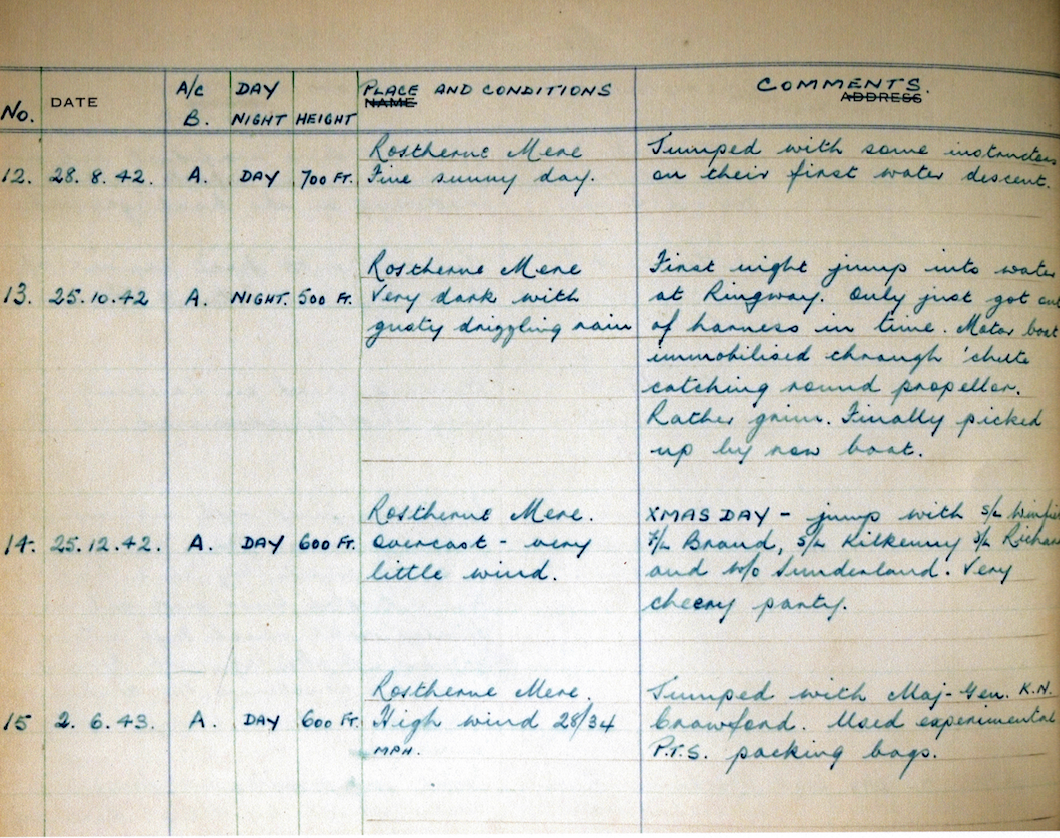 No. DATE A/C B. DAY NIGHT HEIGHT PLACE NAME AND CONDITIONS COMMENTS. ADDRESS
Rostherne Mere Jumped with some instructors
12. 28. 8. 42. A. DAY 700 FT. Fine sunny day. on their first water descent.
Rostherne Mere First night jump into water
13. 25.10.42 A. NIGHT. 500 FT. Very dark with at Ringway. Only just got out
gusty drizzling rain of harness in time. Motor boat
immobilised through 'chute
catching round propellor.
Rather grim. Finally picked
up by row boat.
Rostherne Mere. XMAS DAY - jump with S/L
14. 25.12.42. A. DAY 600 FT. Overcast - very F/L Brand, S/L Kilkenny S/L
little wind. and W/O Sunderland. Very
cheery party.
Rostherne Mere. Jumped with Maj-Gen. K.N.
15 2. 6.43. A. DAY 600 FT. High wind 28/34 Crawford. Used experimental
MPH. P.T.S. packing bags.